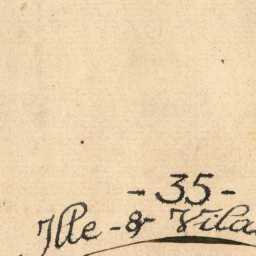 - 35 -
Ille - & Vila